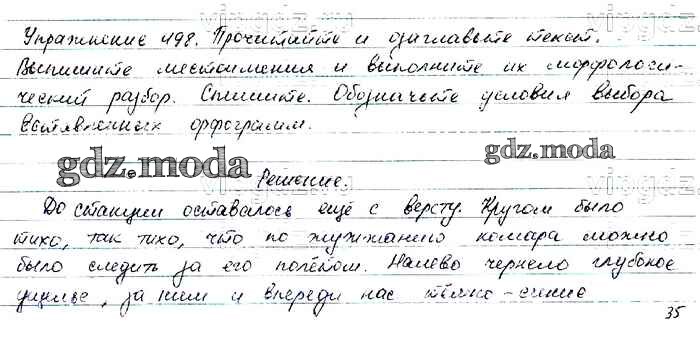 Упражнение 498. Прочитайте и озаглавьте текст.
Выпишите местоимения и выполните их морфологи-
ческий разбор. Спишите. Обозначьте условия выбора
вставленных орфограмм.
gdz.moda
gdz.moda
Решение.
До станции оставалось ещё с версту. Кругом было
тихо, так тихо, что по жужжанию комара можно
было следить за его полётом. Налево чернело глубокое
ущелье, за ним и впереди нас тёмно-синие
35